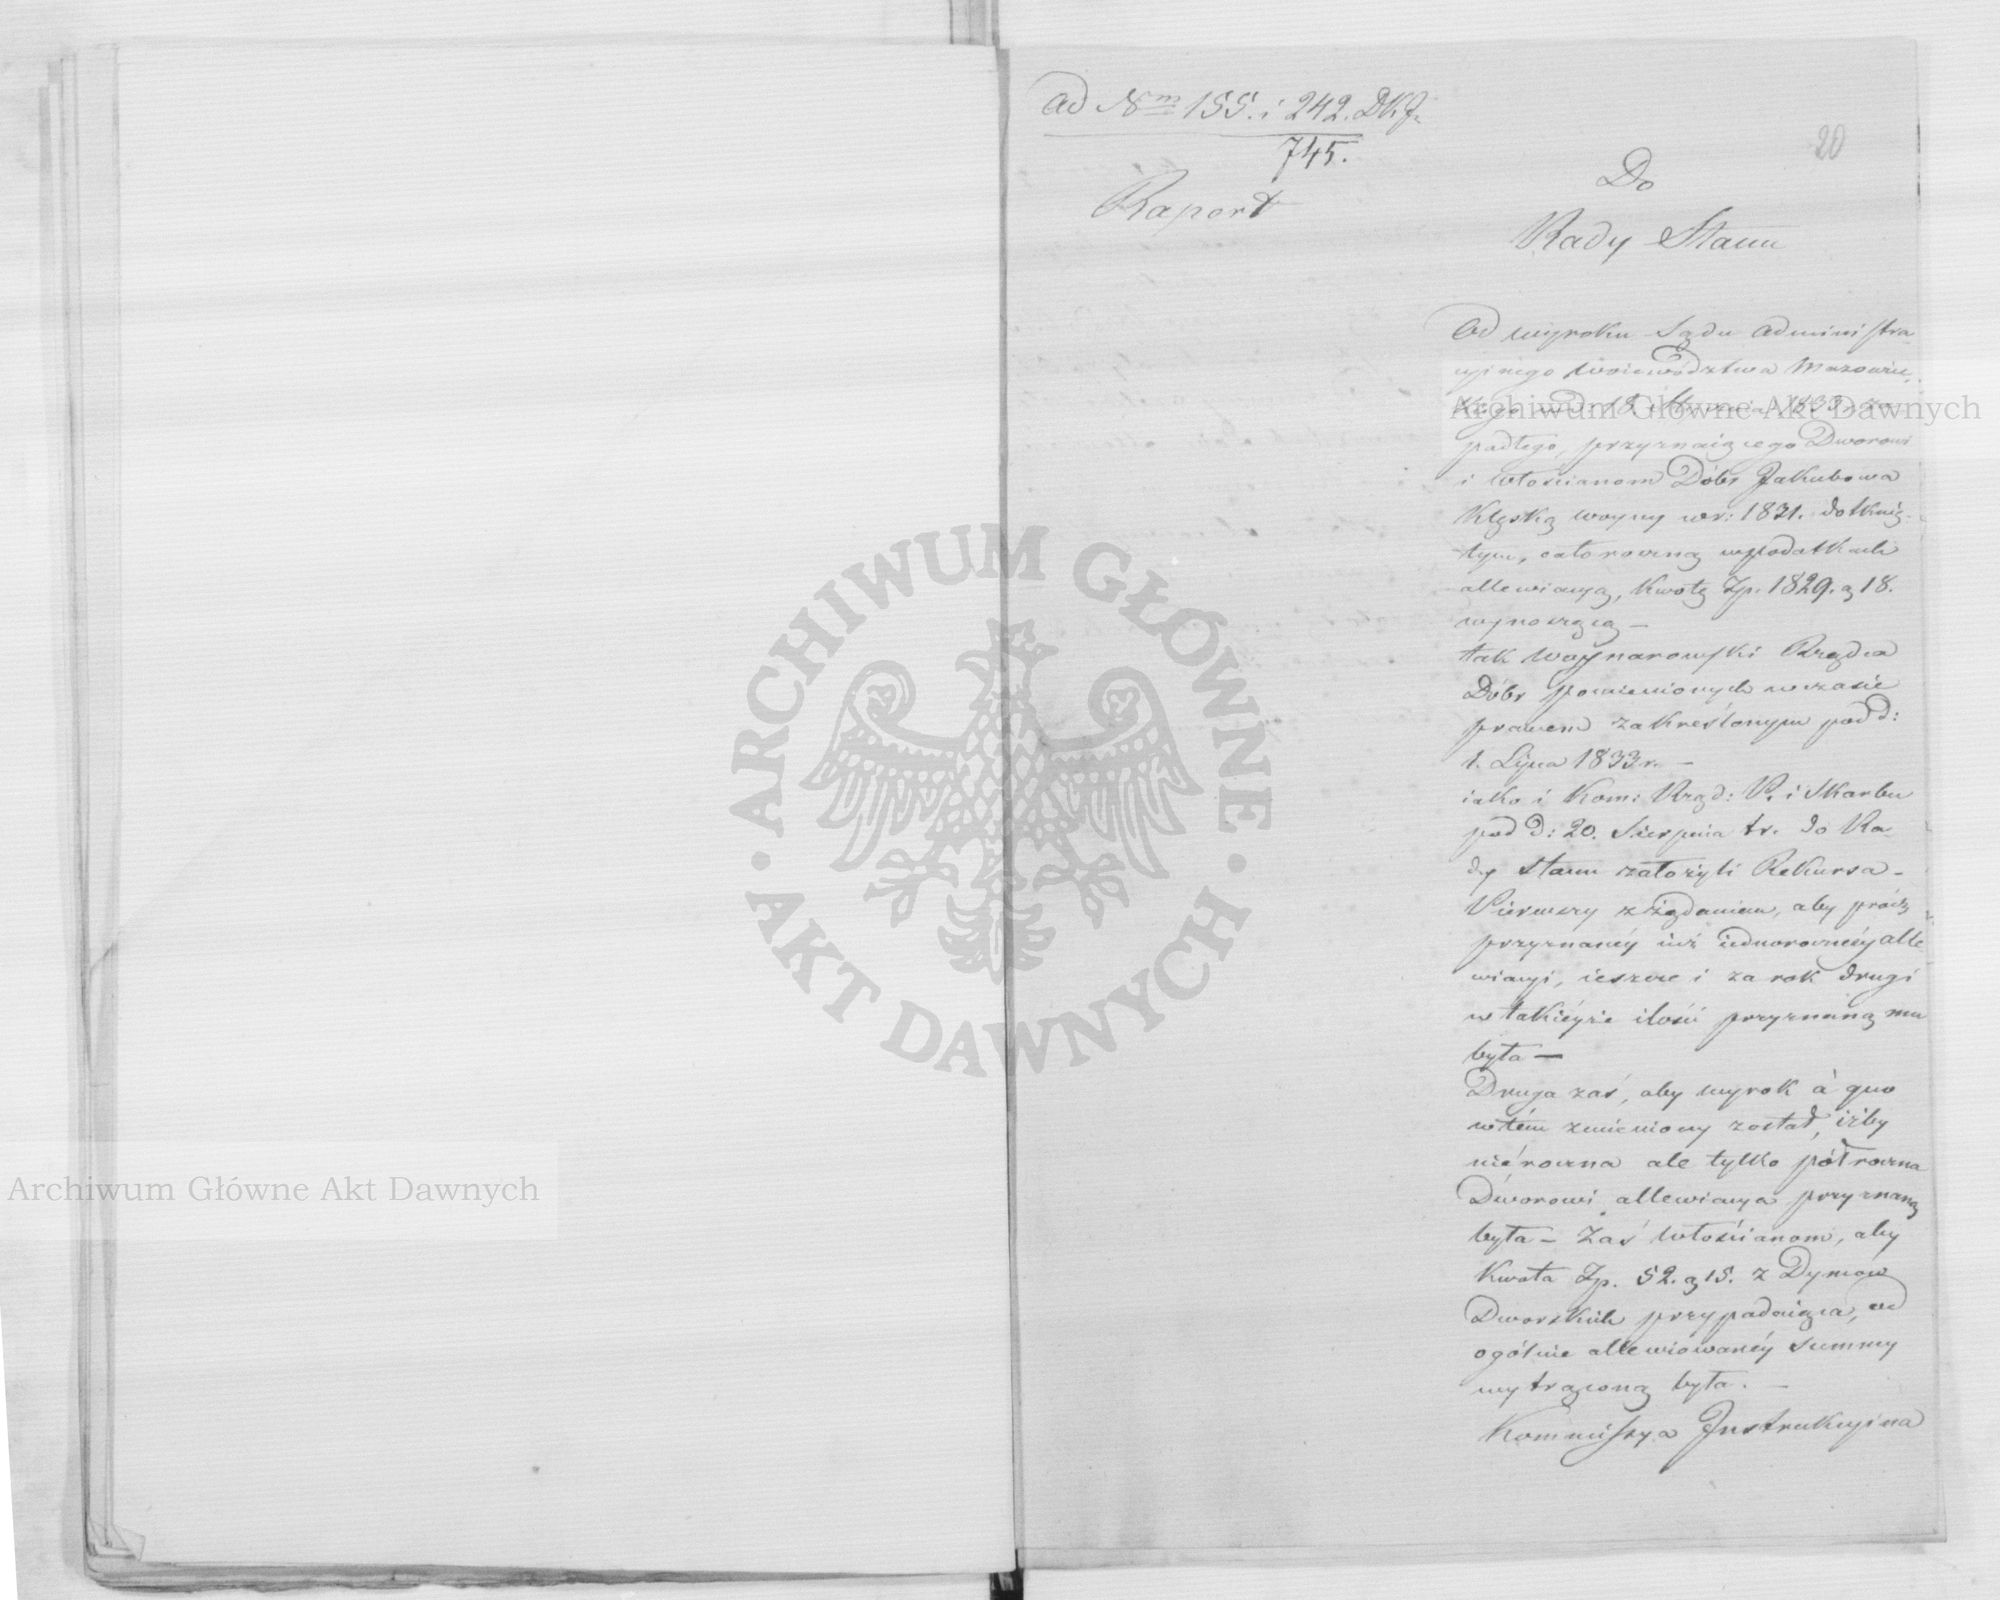 ad Nm 155. i 242. DKJ.
745.
Raport
20
Do
Rady Stanu
Od wyroku Sądu administra
cyjnego Woiewództwa Mazowiec
kiego w d: 18 1833 r. za
padłego, przyznaiącego Dworowi
i włościanom Dóbr Jakubowa
klęską woyny w r: 1831. dotknię
tym, całoroczną w podatkach
allewiacyą, kwotę Zp. 1829. g 18.
wynoszącą —
tak Woynarowski Rządca
Dóbr pomienionych w czasie
prawem zakreślonym pod d:
1. Lipca 1833 r. —
iako i Kom: Rząd: P. i Skarbu
pod d: 20. Sierpnia t.r. do Ra
dy Stanu założyli Rekursa —
Pierwszy z żądaniem, aby prócz
przyznanéy iuż iednorocznéy alle
wiacyi, ieszcze i za rok drugi
w takiéyże ilości przyznaną mu
była —
Druga zaś, aby wyrok à quo
w tém zmieniony został, iżby
nie roczna ale tylko półroczna
Dworowi allewiacya przyznaną
była — Zaś włościanom, aby
kwota Zp. 52. g 15. z Dymów
Dworskich przypadaiąca, od
ogólnie allewiowanéy summy
wytrąconą była. —
Kommissya Instrukcyina
Archiwum Główne Akt Dawnych
Archiwum Główne Akt Dawnych
ARCHIWUM GŁÓWNE AKT DAWNYCH